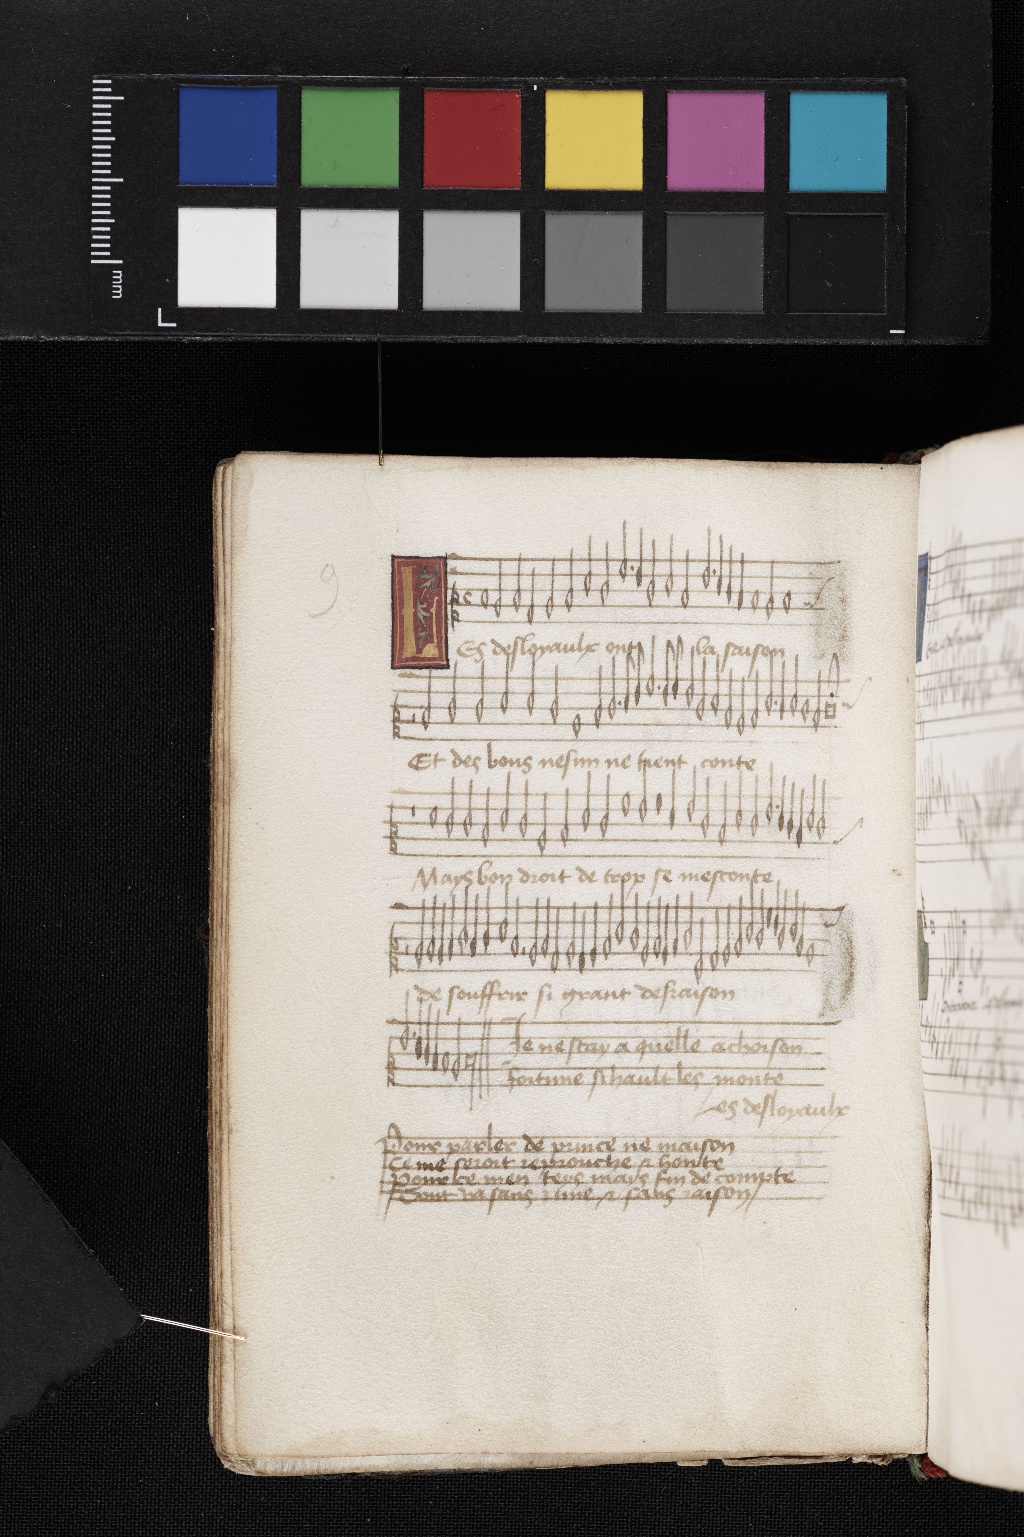 mm
9
Les desloyaulx ont la saison
Et des bons nesun ne tient conte
Mays bon droit de trop se mesconte
de souffrir si grant desraison
Je ne scay a quelle achoison
fortune si hault les monte
Les desloyaulx
Pour parler de prince ne maison
Ce me seroit reprouche & honte
Pour ce men teys mays fin de compte
Tout va sans rime & sans raison